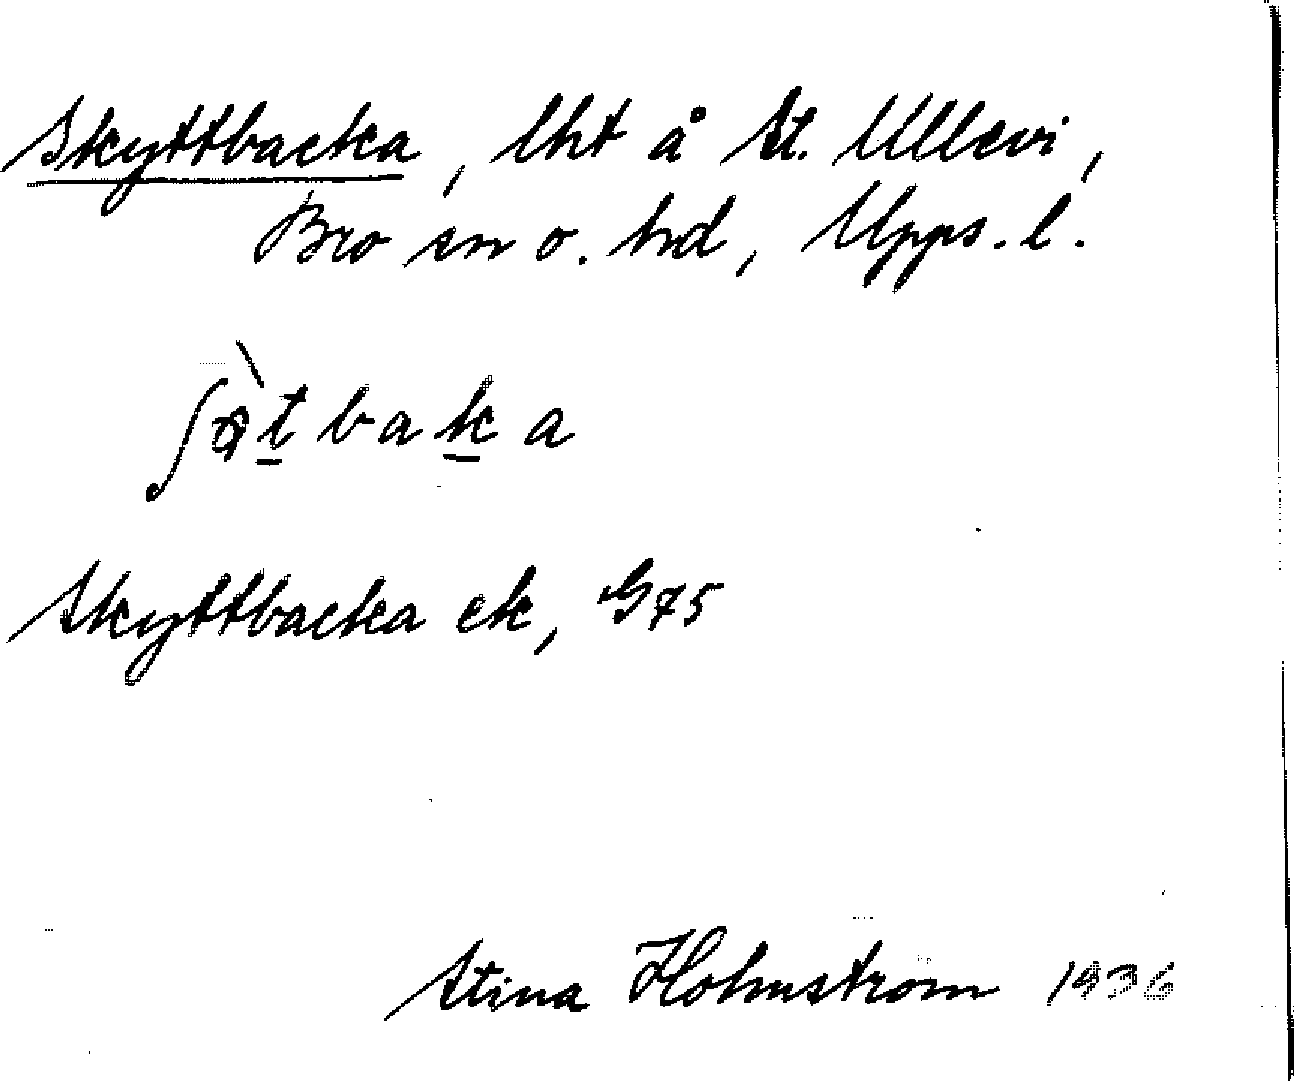 Skyttbacka, lht å St. Ullevi,
Bro sn o. hd, Upps. l.
Skyttbacka ek, G75
Stina Holmström 1936